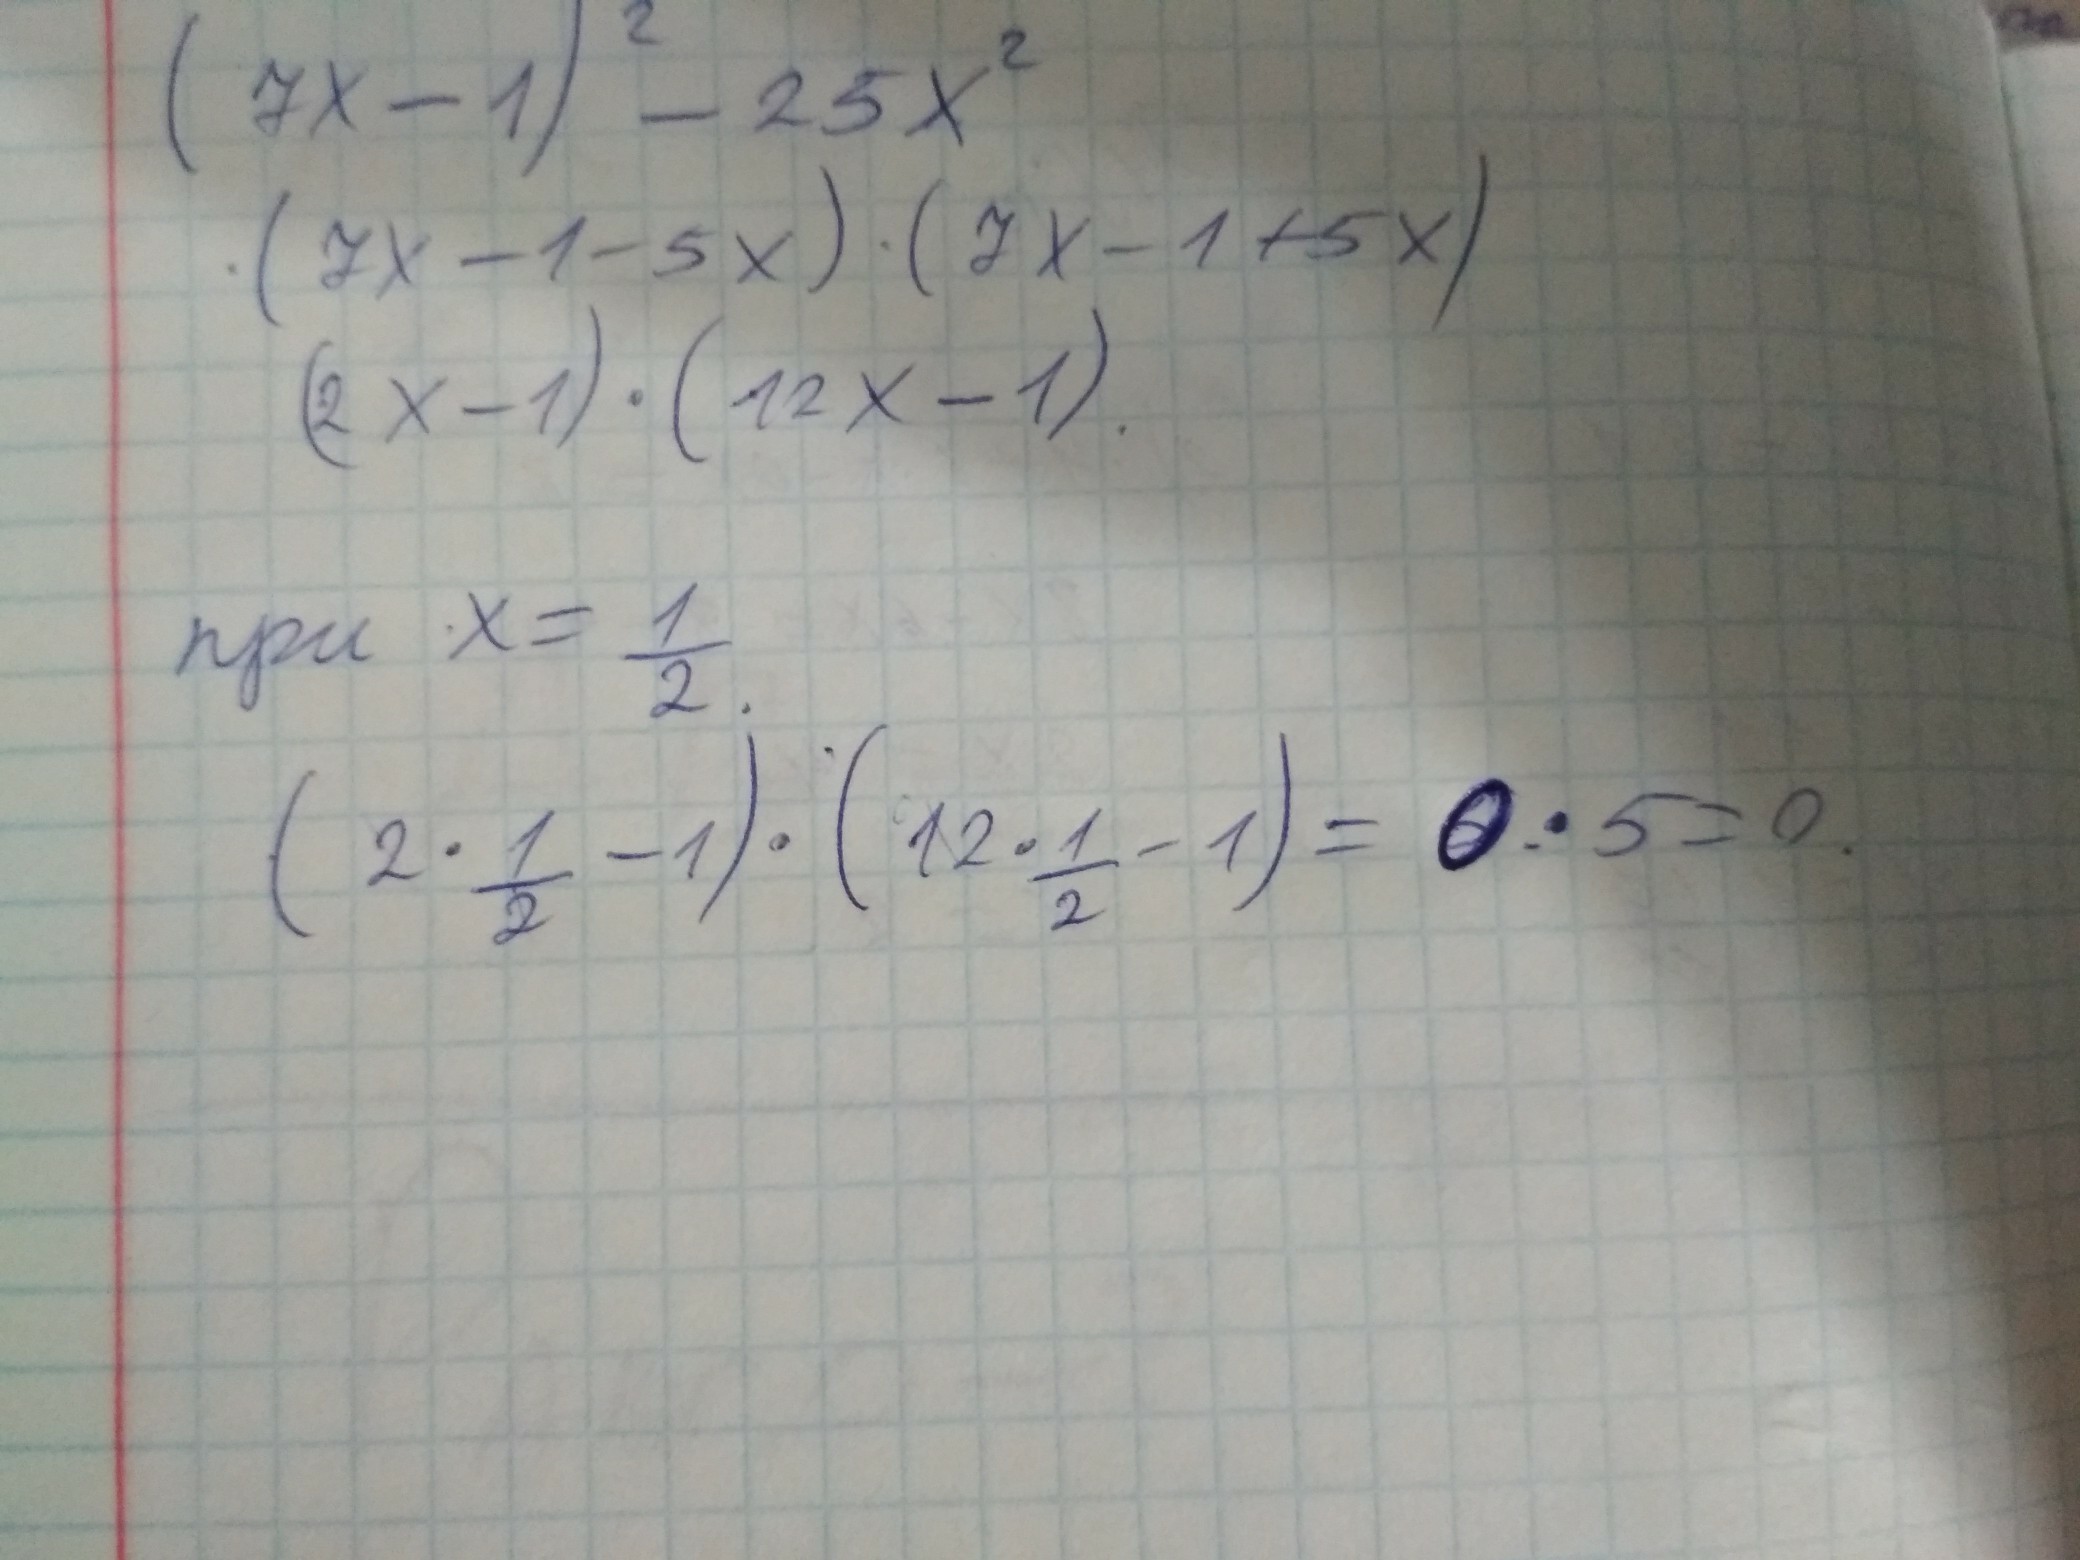 (7x-1)² - 25x²
(7x-1-5x)·(7x-1+5x)
(2x-1)·(12x-1).
при x = 1/2.
(2·1/2-1)·(12·1/2-1) = 0·5=0.